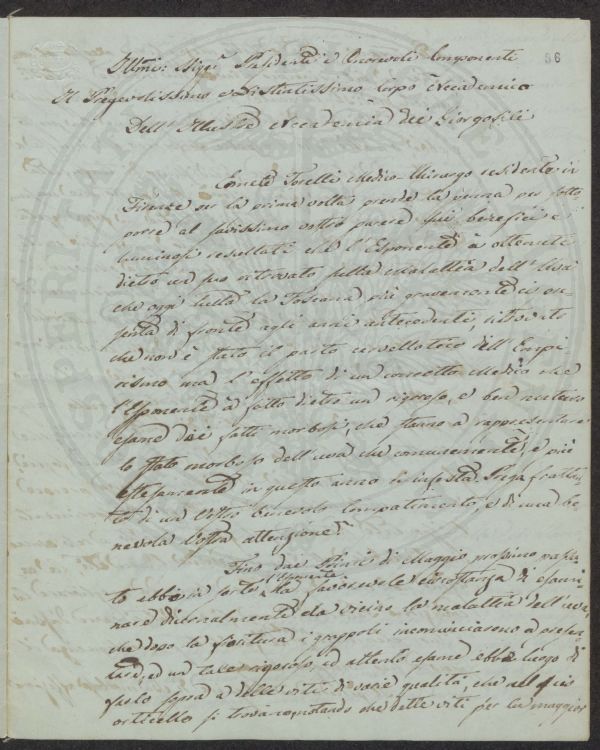 56
Illmi: Sigri Presidente e Onorevoli Componenti
Il Pregevolissimo e Distintissimo Corpo Accademico
Dell'Illustre Accademia dei Giorgofili
Torelli Medico-Chirurgo residente in
Firenze per la prima volta prende la penna per sotto-
porre al savissimo vostro parere sui benefici e
luminosi resultati che l'Esponente à ottenuti
dietro un suo ritrovato sulla Malattia dell'Uva
che oggi tutta la Toscana più gravemente
di fronte agli anni antecedenti, ritrovato
che non è stato il parto cervellotico dell'Empi-
rismo ma l'effetto di un concetto Medico che
l'Esponente à fatto dietro un rigoroso, e ben maturo
esame dei fatti morbosi, che stanno a rappresentare
lo stato morboso dell'uva che comunemente, e più
estesamente in questo anno è infesta. Prega frattan-
to di un vostro benevolo Compatimento, e di una be-
nevola Vostra attenzione.
Fino dai Primi di Maggio prossimo passa-
to ebbi in sorte l'Esponente la favorevole circostanza di esami-
nare diurnalmente da vicino la malattia dell'uva,
che dopo la fioritura i grappoli incominciarono a presen-
tare, ed un tale rigoroso, ed attento esame ebbe luogo di
farlo sopra a delle viti di varie qualità, che nel suo
orticello si trovano, notando che dette viti per la maggior